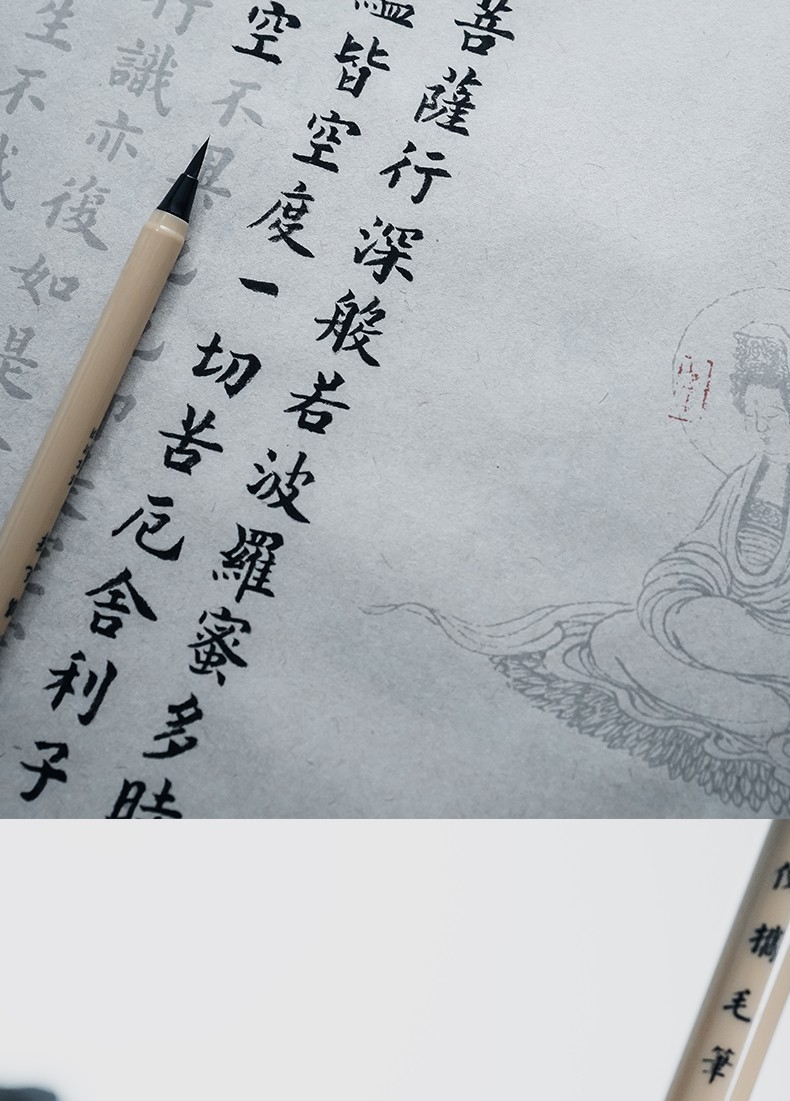 菩薩行深般若波羅蜜多時
蘊皆空度一切苦厄舍利子
空不異
行識亦復如是
生不
便攜毛筆